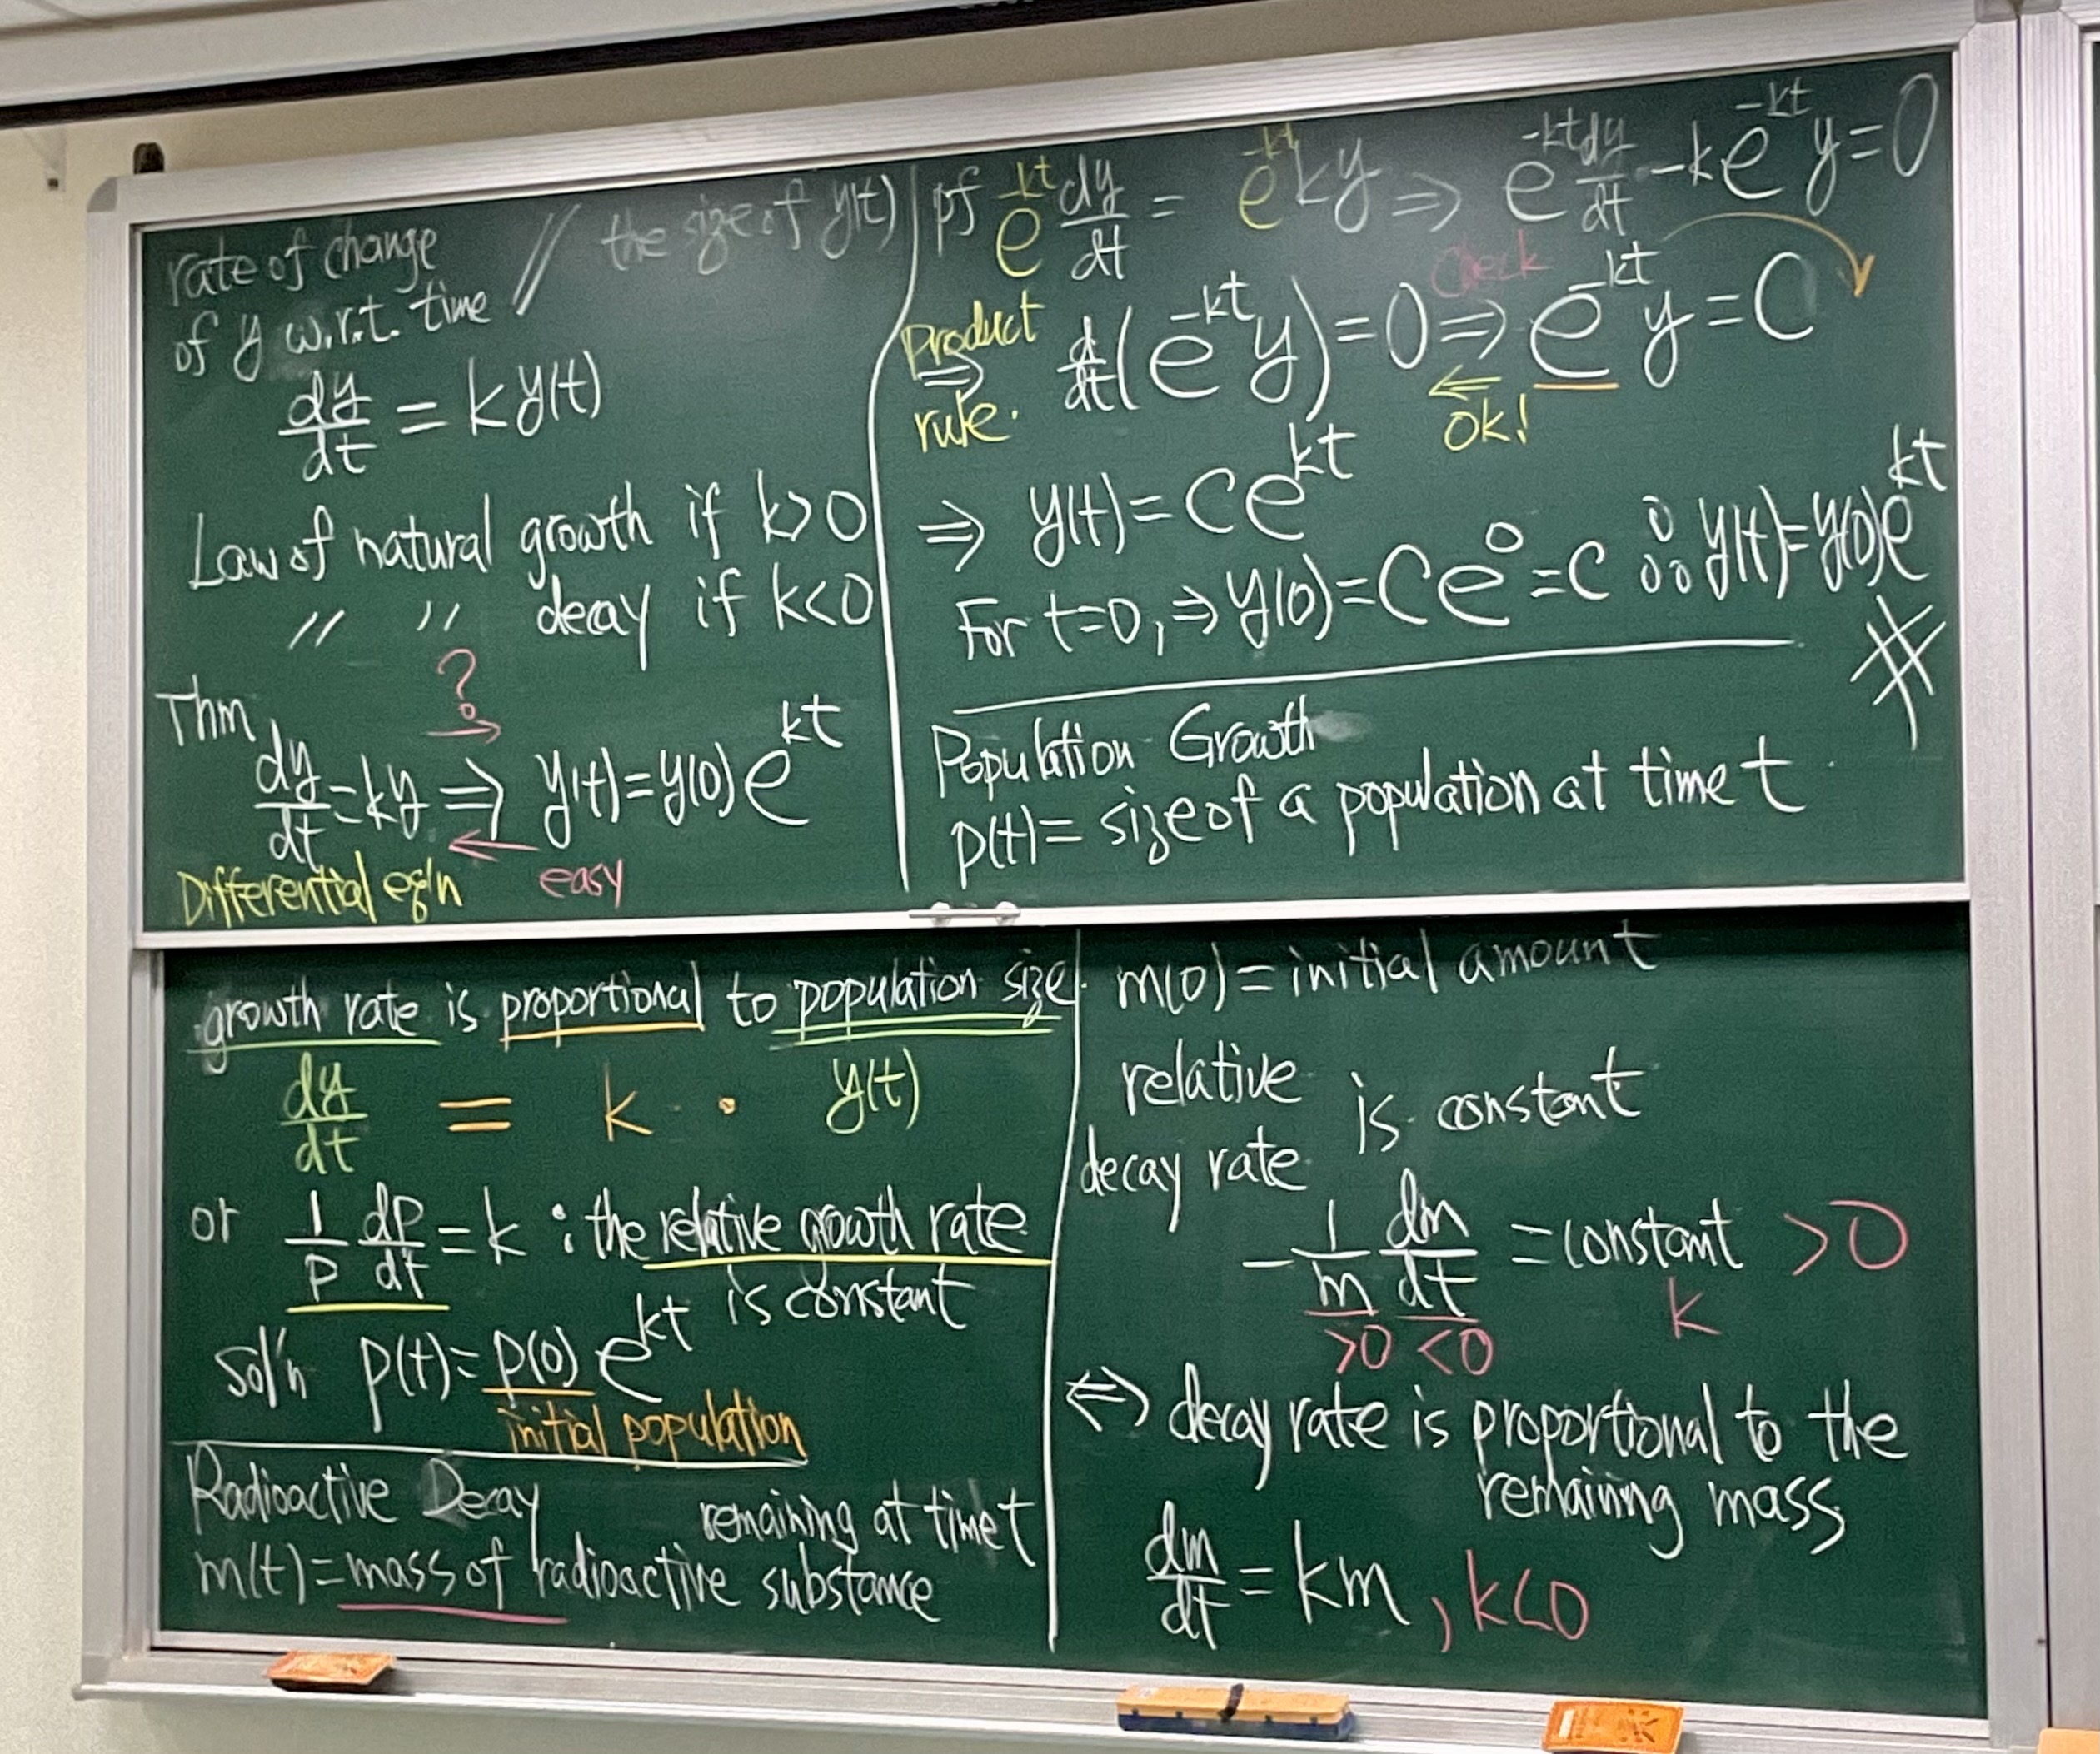 rate of change // the size of y(t)
of y w.r.t. time
dy/dt = k y(t)
Law of natural growth if k>0
// // decay if k<0
?
→
Thm dy/dt = ky ⇒ y(t) = y(0) e^{kt}
← easy
Differential eq'n
pf e^{-kt} dy/dt = e^{-kt} ky ⇒ e^{-kt} dy/dt - k e^{-kt} y = 0
Check
Product
⇒ d/dt (e^{-kt} y) = 0 ⇒ e^{-kt} y = C
rule. ← ok!
⇒ y(t) = C e^{kt}
For t=0, ⇒ y(0) = C e^0 = C ∴ y(t) = y(0) e^{kt}
#
Population Growth
p(t) = size of a population at time t
growth rate is proportional to population size.
dy/dt = k · y(t)
or 1/p dp/dt = k : the relative growth rate
is constant
sol'n p(t) = p(0) e^{kt}
initial population
Radioactive Decay
remaining at time t
m(t) = mass of radioactive substance
m(0) = initial amount
relative
decay rate is constant
- 1/m dm/dt = constant > 0
>0 <0 k
⇔ decay rate is proportional to the
remaining mass
dm/dt = km , k<0